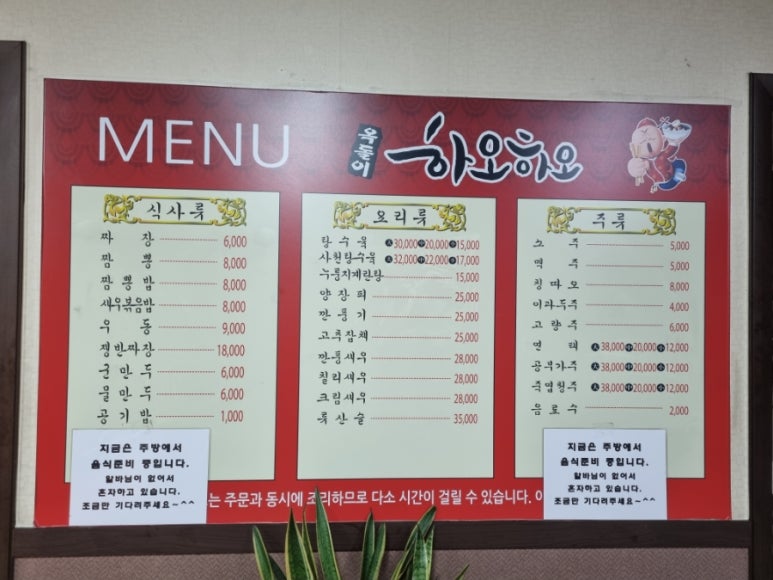 MENU 옥돌이 하오하오
식사류
짜장 6,000
짬뽕 8,000
짬뽕밥 8,000
새우볶음밥 8,000
우동 9,000
쟁반짜장 18,000
군만두 6,000
물만두 6,000
공기밥 1,000
요리류
탕수육 大30,000 中20,000 小15,000
사천탕수육 大32,000 中22,000 小17,000
누룽지계란탕 15,000
양장피 25,000
깐풍기 25,000
고추잡채 25,000
깐풍새우 28,000
칠리새우 28,000
크림새우 28,000
류산슬 35,000
주류
소주 5,000
맥주 5,000
칭따오 8,000
이과두주 4,000
고량주 6,000
연태 大38,000 中20,000 小12,000
공부가주 大38,000 中20,000 小12,000
죽엽청주 大38,000 中20,000 小12,000
음료수 2,000
지금은 주방에서
음식준비 중입니다.
알바님이 없어서
혼자하고 있습니다.
조금만 기다려주세요~^^
는 주문과 동시에 조리하므로 다소 시간이 걸릴 수 있습니다. 이
지금은 주방에서
음식준비 중입니다.
알바님이 없어서
혼자하고 있습니다.
조금만 기다려주세요~^^